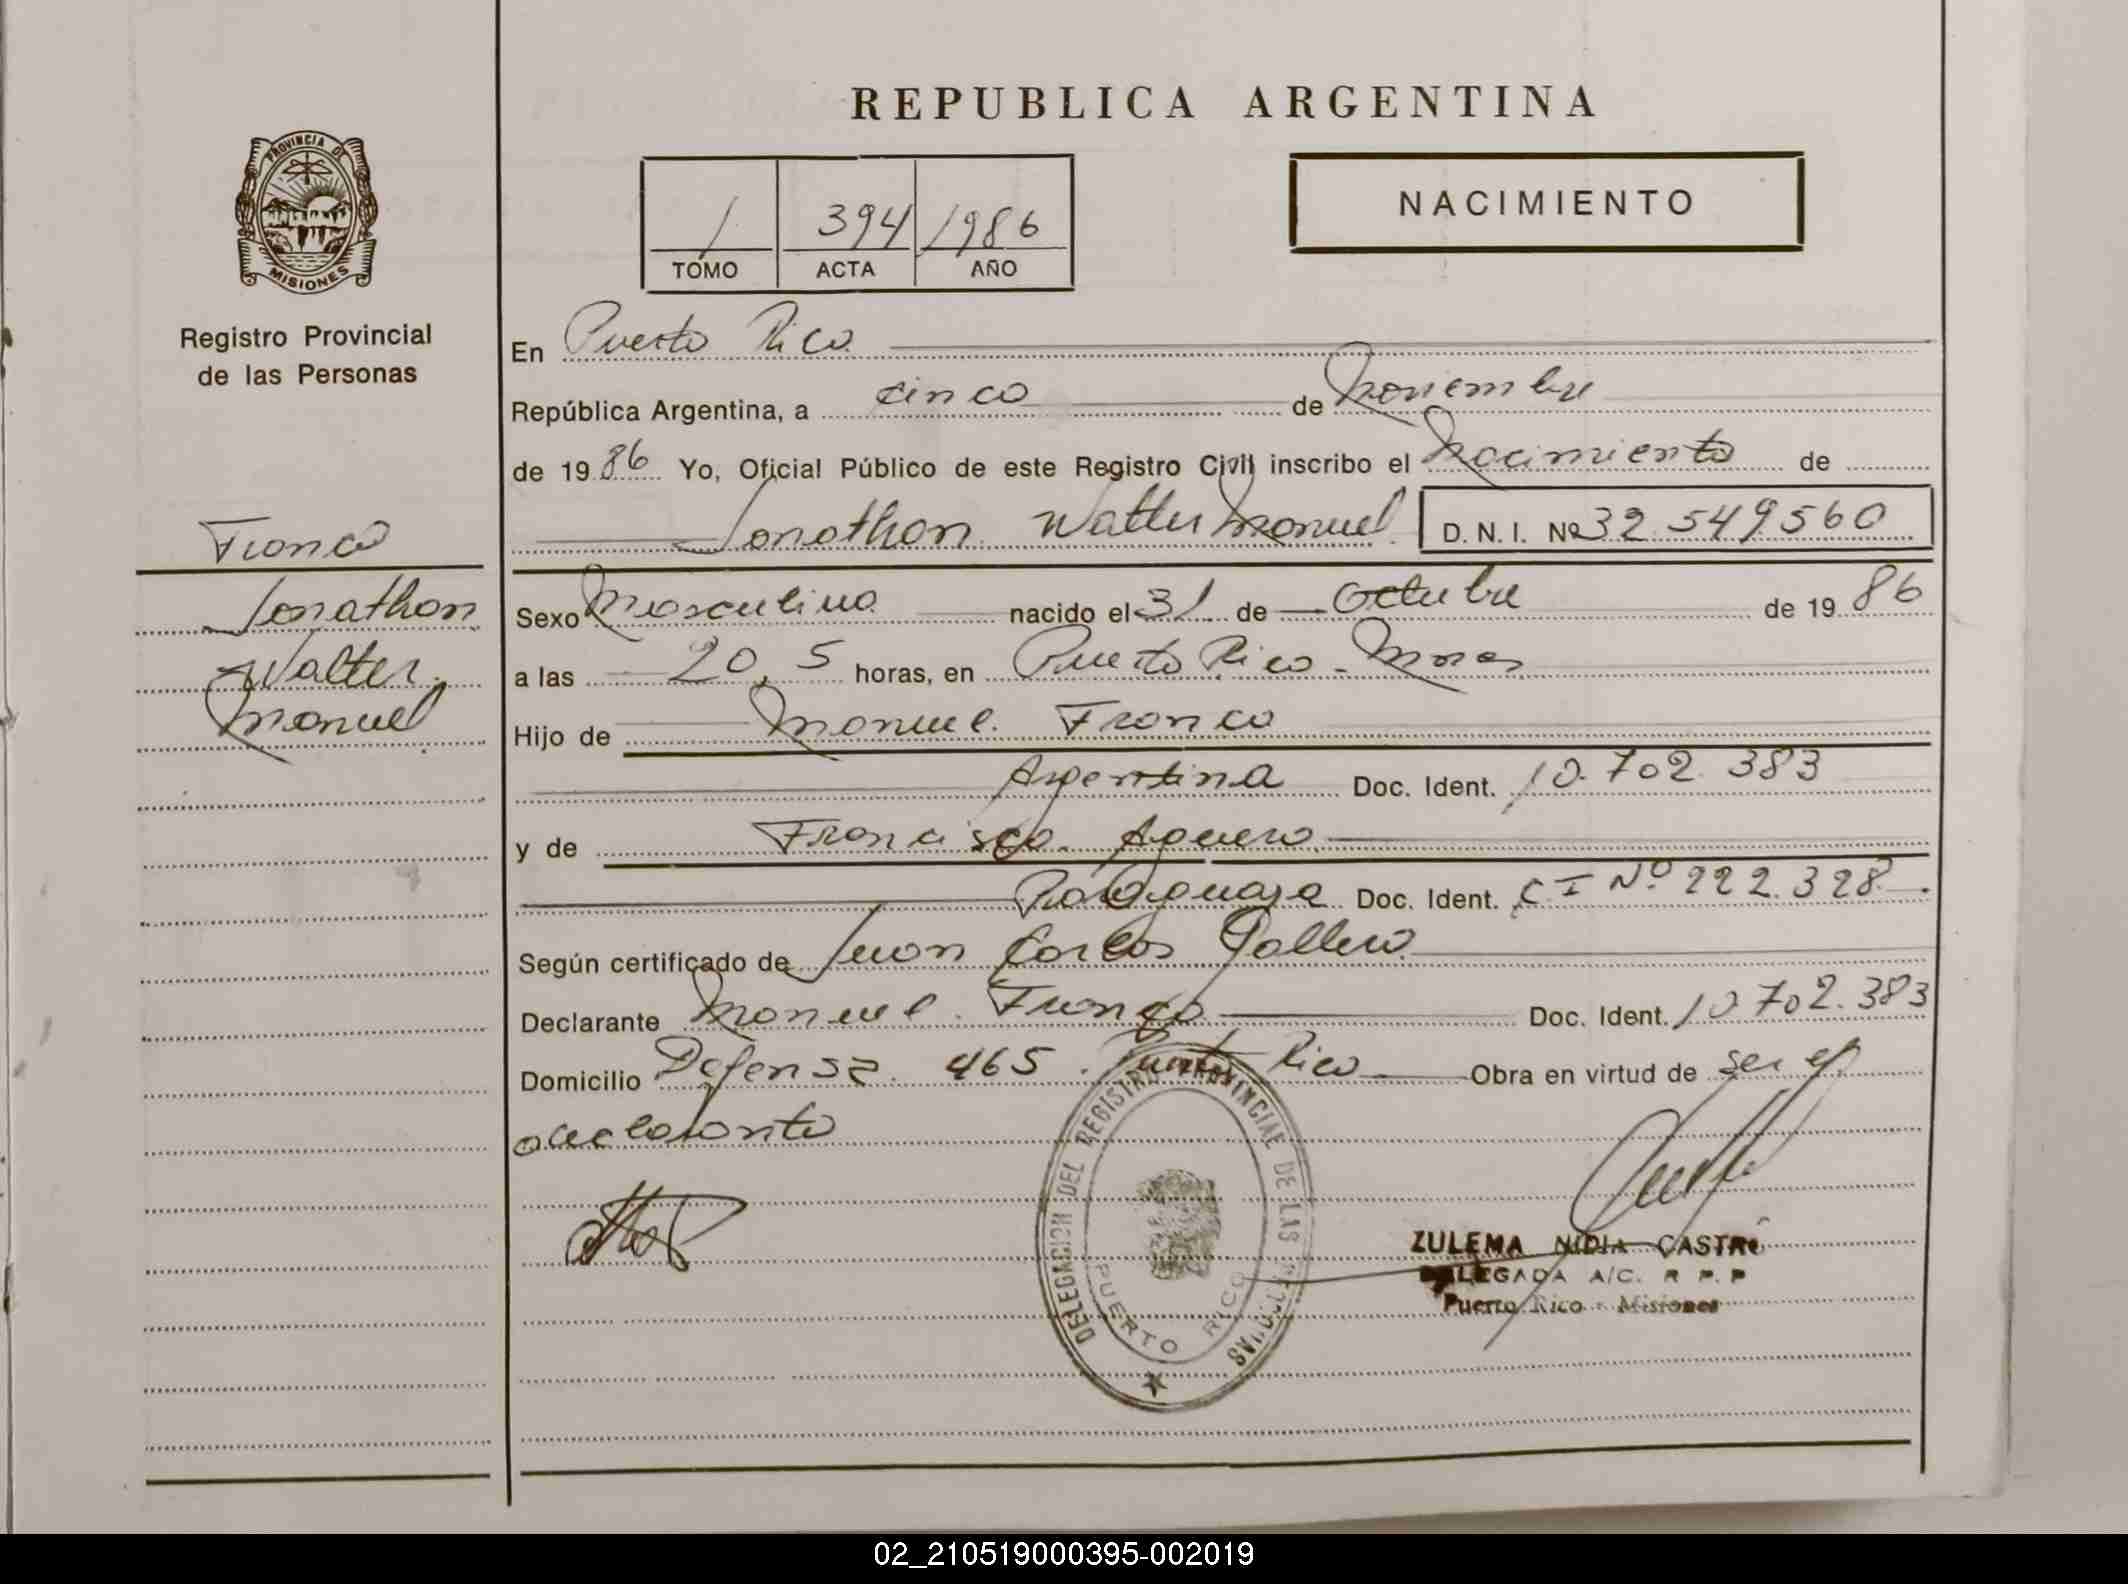 REPUBLICA ARGENTINA
PROVINCIA DE
MISIONES
Registro Provincial
de las Personas
1 394 1986
TOMO ACTA AÑO
NACIMIENTO
En Puerto Rico
República Argentina, a cinco de Noviembre
de 1986 Yo, Oficial Público de este Registro Civil inscribo el Nacimiento de
Jonathan Walter Manuel D. N. I. Nº 32.549560
Franco
Jonathan
Walter
Manuel
Sexo Masculino nacido el 31 de Octubre de 1986
a las 20,5 horas, en Puerto Rico - Mnes
Hijo de Manuel Franco
Argentina Doc. Ident. 10.702.383
y de Francisca Aguero
Paraguaya Doc. Ident. C I Nº 222.328
Según certificado de Juan Carlos
Declarante Manuel Franco Doc. Ident. 10 702.383
Domicilio Defensa 465. Puerto Rico Obra en virtud de ser el
declarante
DELEGACION DEL REGISTRO PROVINCIAL DE LAS PERSONAS
PUERTO RICO
ZULEMA NIDIA CASTRO
DELEGADA A/C. R P. P
Puerto Rico - Misiones
02_210519000395-002019